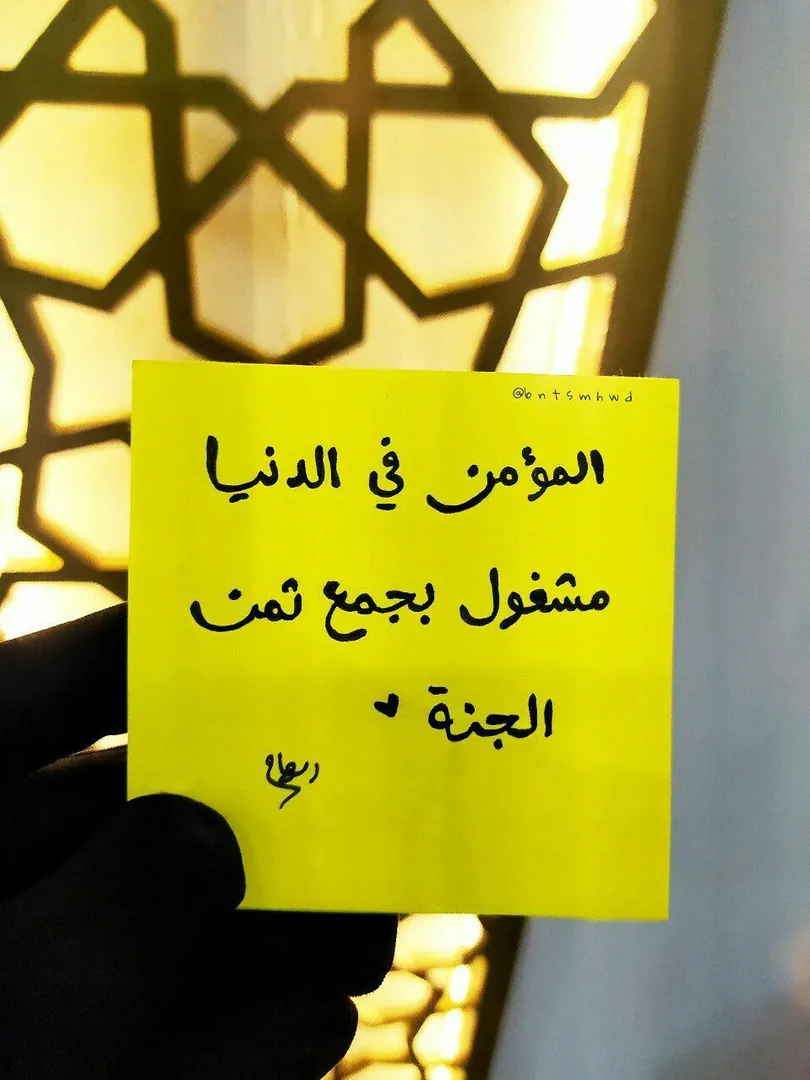 @bntsmhwd
المؤمن في الدنيا
مشغول بجمع ثمن
الجنة